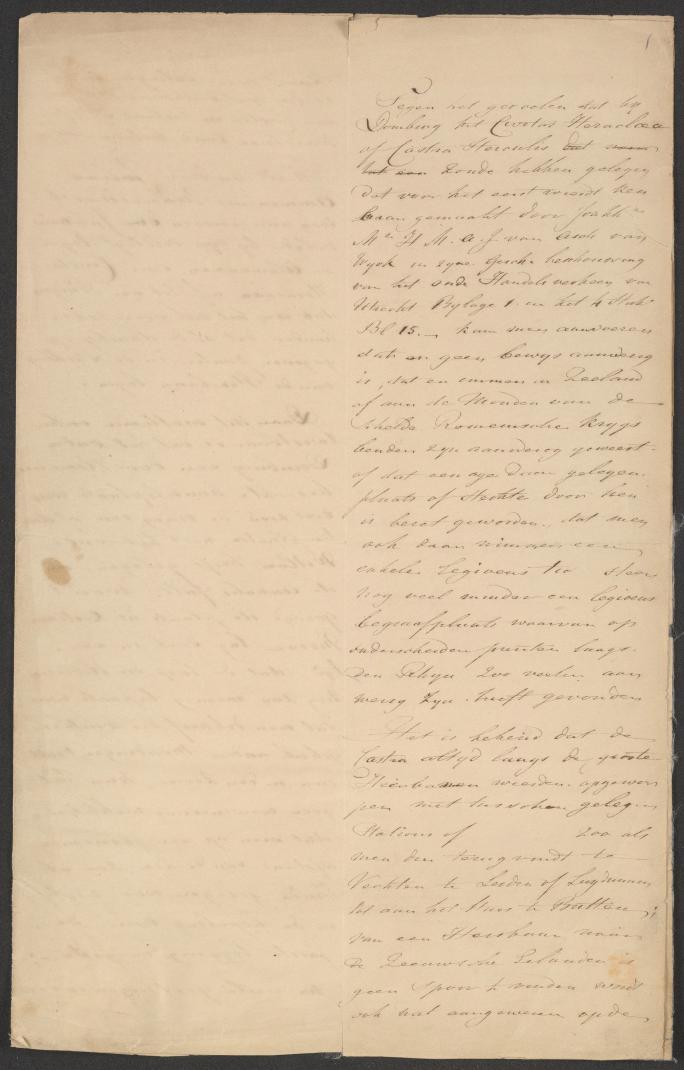 Tegen het gevoelen dat by
Domburg het Civitas Heracleæ
of Castra Herculis dat voor
zoude hebben gelegen
dat voor het eerst wierdt ten
baan gemaakt door Jonkhr
Mr H M. A J van Asch van
Wyck in zyne Gesch: beschouwing
van het oude Handelsverkeer van
Utrecht Bylage 1. in het 4 Stuk
Bl 15. kan men aanvoeren
dat er geen bewys aanwezig
is, dat er immer in Zeeland
of aan de Monden van de
Schelde Romeinsche krygs
benden zyn aanwezig geweest
of dat een age daar gelegen
plaats of sterkte door hen
is bezet geworden, dat men
ook daar nimmer een
enkelen legioens steen
nog veel minder een legioens
begraafplaats waarvan op
onderscheiden punten langs
den Rhyn zoo veelen aan
wezig zyn heeft gevonden
Het is bekend dat de
Castra altyd langs de groote
Heirbanen wierden opgewor
pen met tusschen gelegen
Stations of zoo als
men die terug vindt te
Vechten te Leiden of Lugdunum
tot aan het Huis te Britten
van een Heerbaan naar
de Zeeuwsche Eilanden is
geen spoor te vinden word
ook niet aangewezen op de